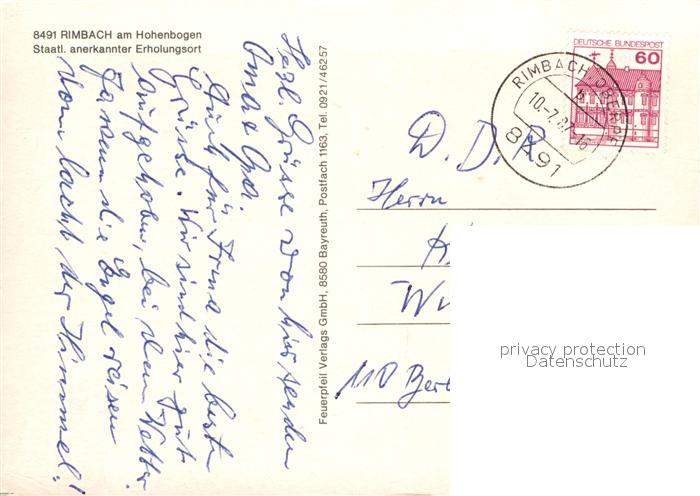 8491 RIMBACH am Hohenbogen
Staatl. anerkannter Erholungsort
Herzl. Grüsse von hier senden
Oma & Opa.
Auch für Irma die beste
Grüsse. Wir sind hier gut
aufgehoben, bei dem Wetter.
Ja wenn die Engel reisen
dann lacht der Himmel!
Feuerpfeil Verlags GmbH, 8580 Bayreuth, Postfach 1163, Tel. 0921/46257
DEUTSCHE BUNDESPOST
60
RIMBACH, OBERPF
10.-7.87-16
8491
D. D. R.
Herrn
110 Ber
privacy protection
Datenschutz